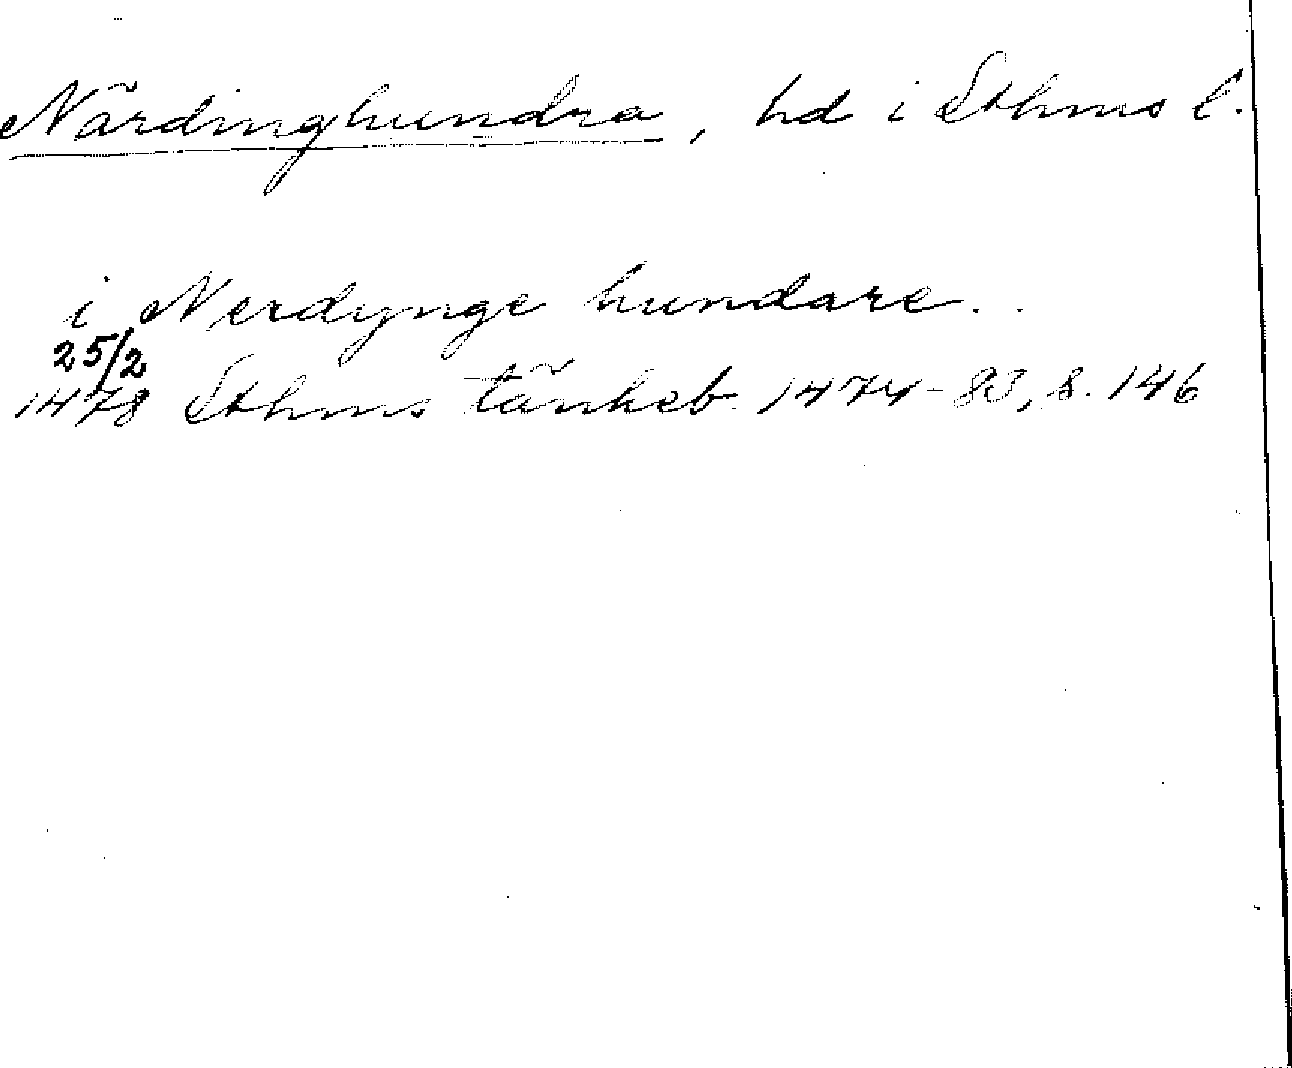 Närdinghundra, hd i Sthms l.
i Nerdynge hundare..
25/2
1478 Sthms tänkeb. 1474-83, s. 146